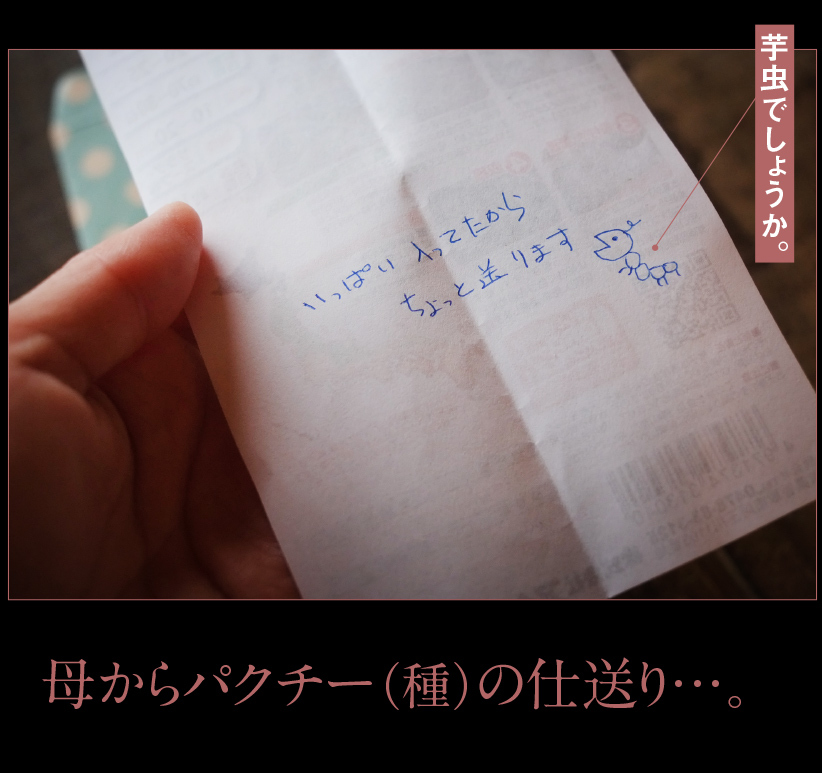 芋虫でしょうか。
いっぱい入ってたから
ちょっと送ります
母からパクチー（種）の仕送り…。